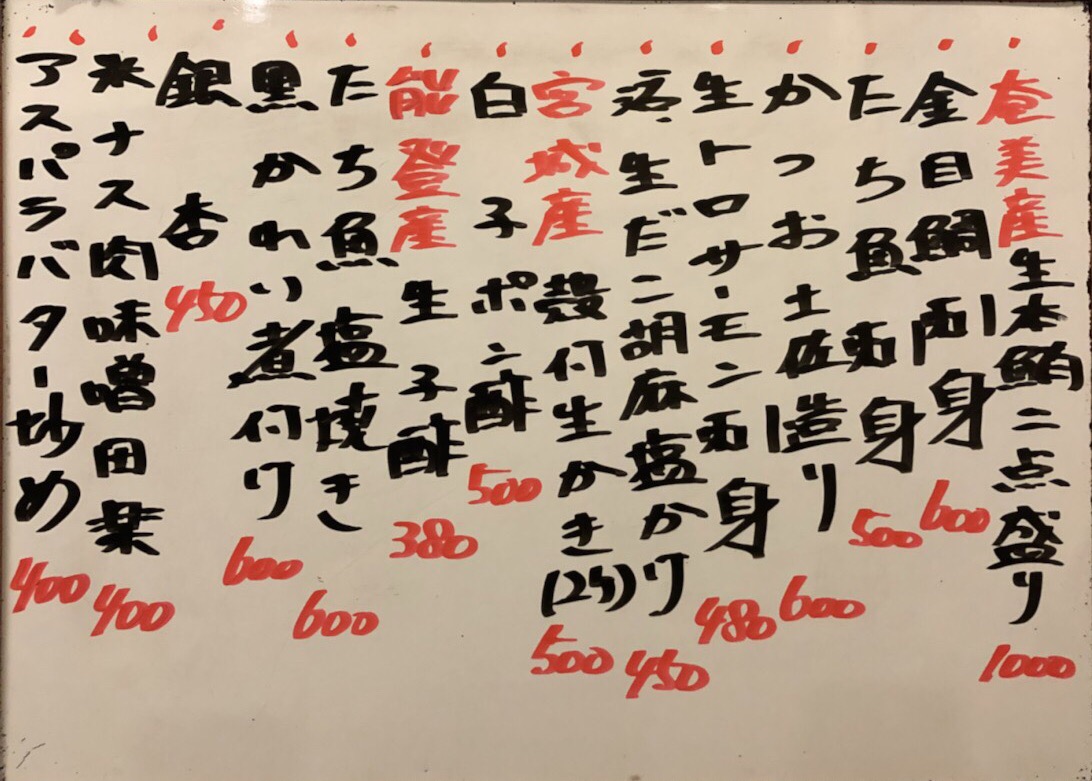 奄美産生本鮪二点盛り 1000
金目鯛刺身 600
たち魚刺身 500
かつお土佐造り 600
生トロサーモン刺身 480
生だこ胡麻塩かけ 450
宮城産殻付生かき(2ケ) 500
白子ポン酢 500
能登産生子酢 380
たち魚塩焼き 600
黒かれい煮付け 600
銀杏 450
水ナス肉味噌田楽 400
アスパラバター炒め 400